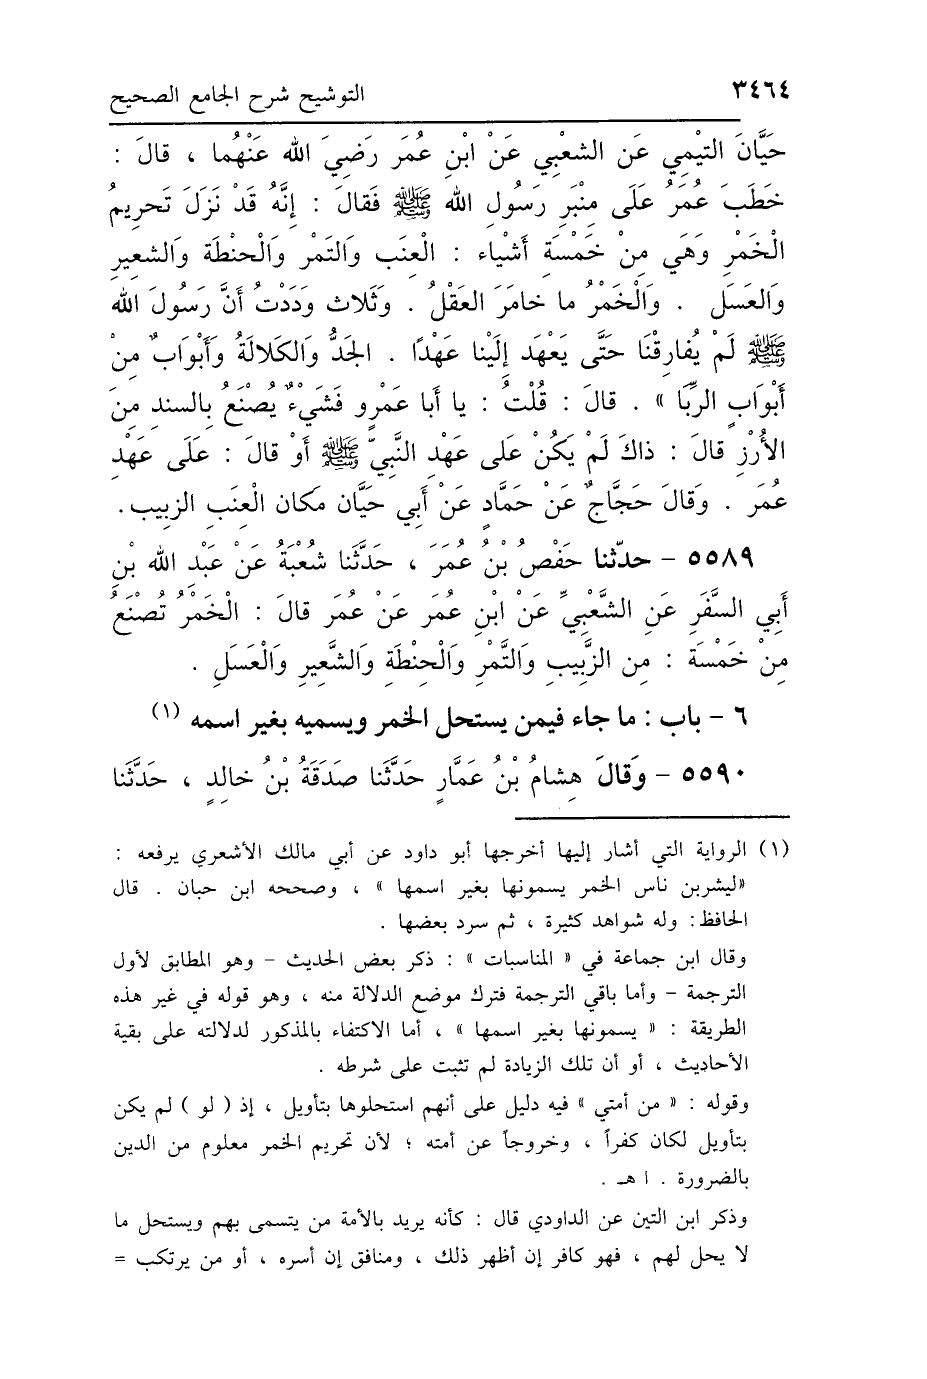 ٣٤٦٤ التوشيح شرح الجامع الصحيح
حَيَّانَ التيْمِي عَن الشعْبِي عَنْ ابْنِ عُمَرَ رَضِيَ الله عَنْهُما ، قالَ :
خَطَبَ عُمَرُ عَلَى مِنْبَرِ رَسُولِ الله ﷺ فَقالَ : إِنَّهُ قَدْ نَزَلَ تَحرِيمُ
الْخَمْرِ وَهَي مِنْ خَمْسَةِ أَشْياء : الْعِنَب وَالتَمْرِ وَالْحِنْطَة وَالشعِيرِ
وَالعَسَل . وَالْخَمْرُ ما خامَرَ العَقْلُ . وَثَلاث وَدَدْتُ أَنَّ رَسُولَ الله
ﷺ لَمْ يُفارِقْنَا حَتَّى يَعْهَد إِلَيْنا عَهْدًا . الجَدُّ وَالكَلالَةُ وَأَبْوَابٌ مِنْ
أَبْوَابِ الرِّبَا » . قالَ : قُلْتُ : يا أَبا عَمْرٍو فَشَيْءٌ يُصْنَعُ بِالسند مِنَ
الأُرْزِ قالَ : ذاكَ لَمْ يَكُنْ عَلى عَهْدِ النَّبِيِّ ﷺ أَوْ قالَ : عَلَى عَهْدِ
عُمَرَ . وَقالَ حَجَّاجٌ عَنْ حَمَّادٍ عَنْ أَبي حَيَّان مَكان الْعِنَب الزبِيب .
٥٥٨٩ – حدّثنا حَفْصُ بْنُ عُمَرَ ، حَدَّثَنا شُعْبَةُ عَنْ عَبْدِ الله بْنِ
أَبِي السَّفَرِ عَنِ الشَّعْبِيِّ عَنْ ابْنِ عُمَرَ عَنْ عُمَرَ قالَ : الْخَمْرُ تُصْنَعُ
مِنْ خَمْسَة : مِن الزَّبِيبِ وَالتَّمْرِ وَالْحِنْطَةِ وَالشَّعِيرِ وَالْعَسَلِ .
٦ – باب : ما جاء فيمن يستحل الخمر ويسميه بغير اسمه (١)
٥٥٩٠ – وَقالَ هِشامُ بْنُ عَمَّارٍ حَدَّثَنا صَدَقَةُ بْنُ خالِدٍ ، حَدَّثَنا
(١) الرواية التي أشار إليها أخرجها أبو داود عن أبي مالك الأشعري يرفعه :
«ليشربن ناس الخمر يسمونها بغير اسمها » ، وصححه ابن حبان . قال
الحافظ: وله شواهد كثيرة ، ثم سرد بعضها .
وقال ابن جماعة في « المناسبات » : ذكر بعض الحديث – وهو المطابق لأول
الترجمة – وأما باقي الترجمة فترك موضع الدلالة منه ، وهو قوله في غير هذه
الطريقة : « يسمونها بغير اسمها » ، أما الاكتفاء بالمذكور لدلالته على بقية
الأحاديث ، أو أن تلك الزيادة لم تثبت على شرطه .
وقوله : « من أمتي » فيه دليل على أنهم استحلوها بتأويل ، إذ ( لو ) لم يكن
بتأويل لكان كفراً ، وخروجاً عن أمته ؛ لأن تحريم الخمر معلوم من الدين
بالضرورة . ا هـ .
وذكر ابن التين عن الداودي قال : كأنه يريد بالأمة من يتسمى بهم ويستحل ما
لا يحل لهم ، فهو كافر إن أظهر ذلك ، ومنافق إن أسره ، أو من يرتكب =